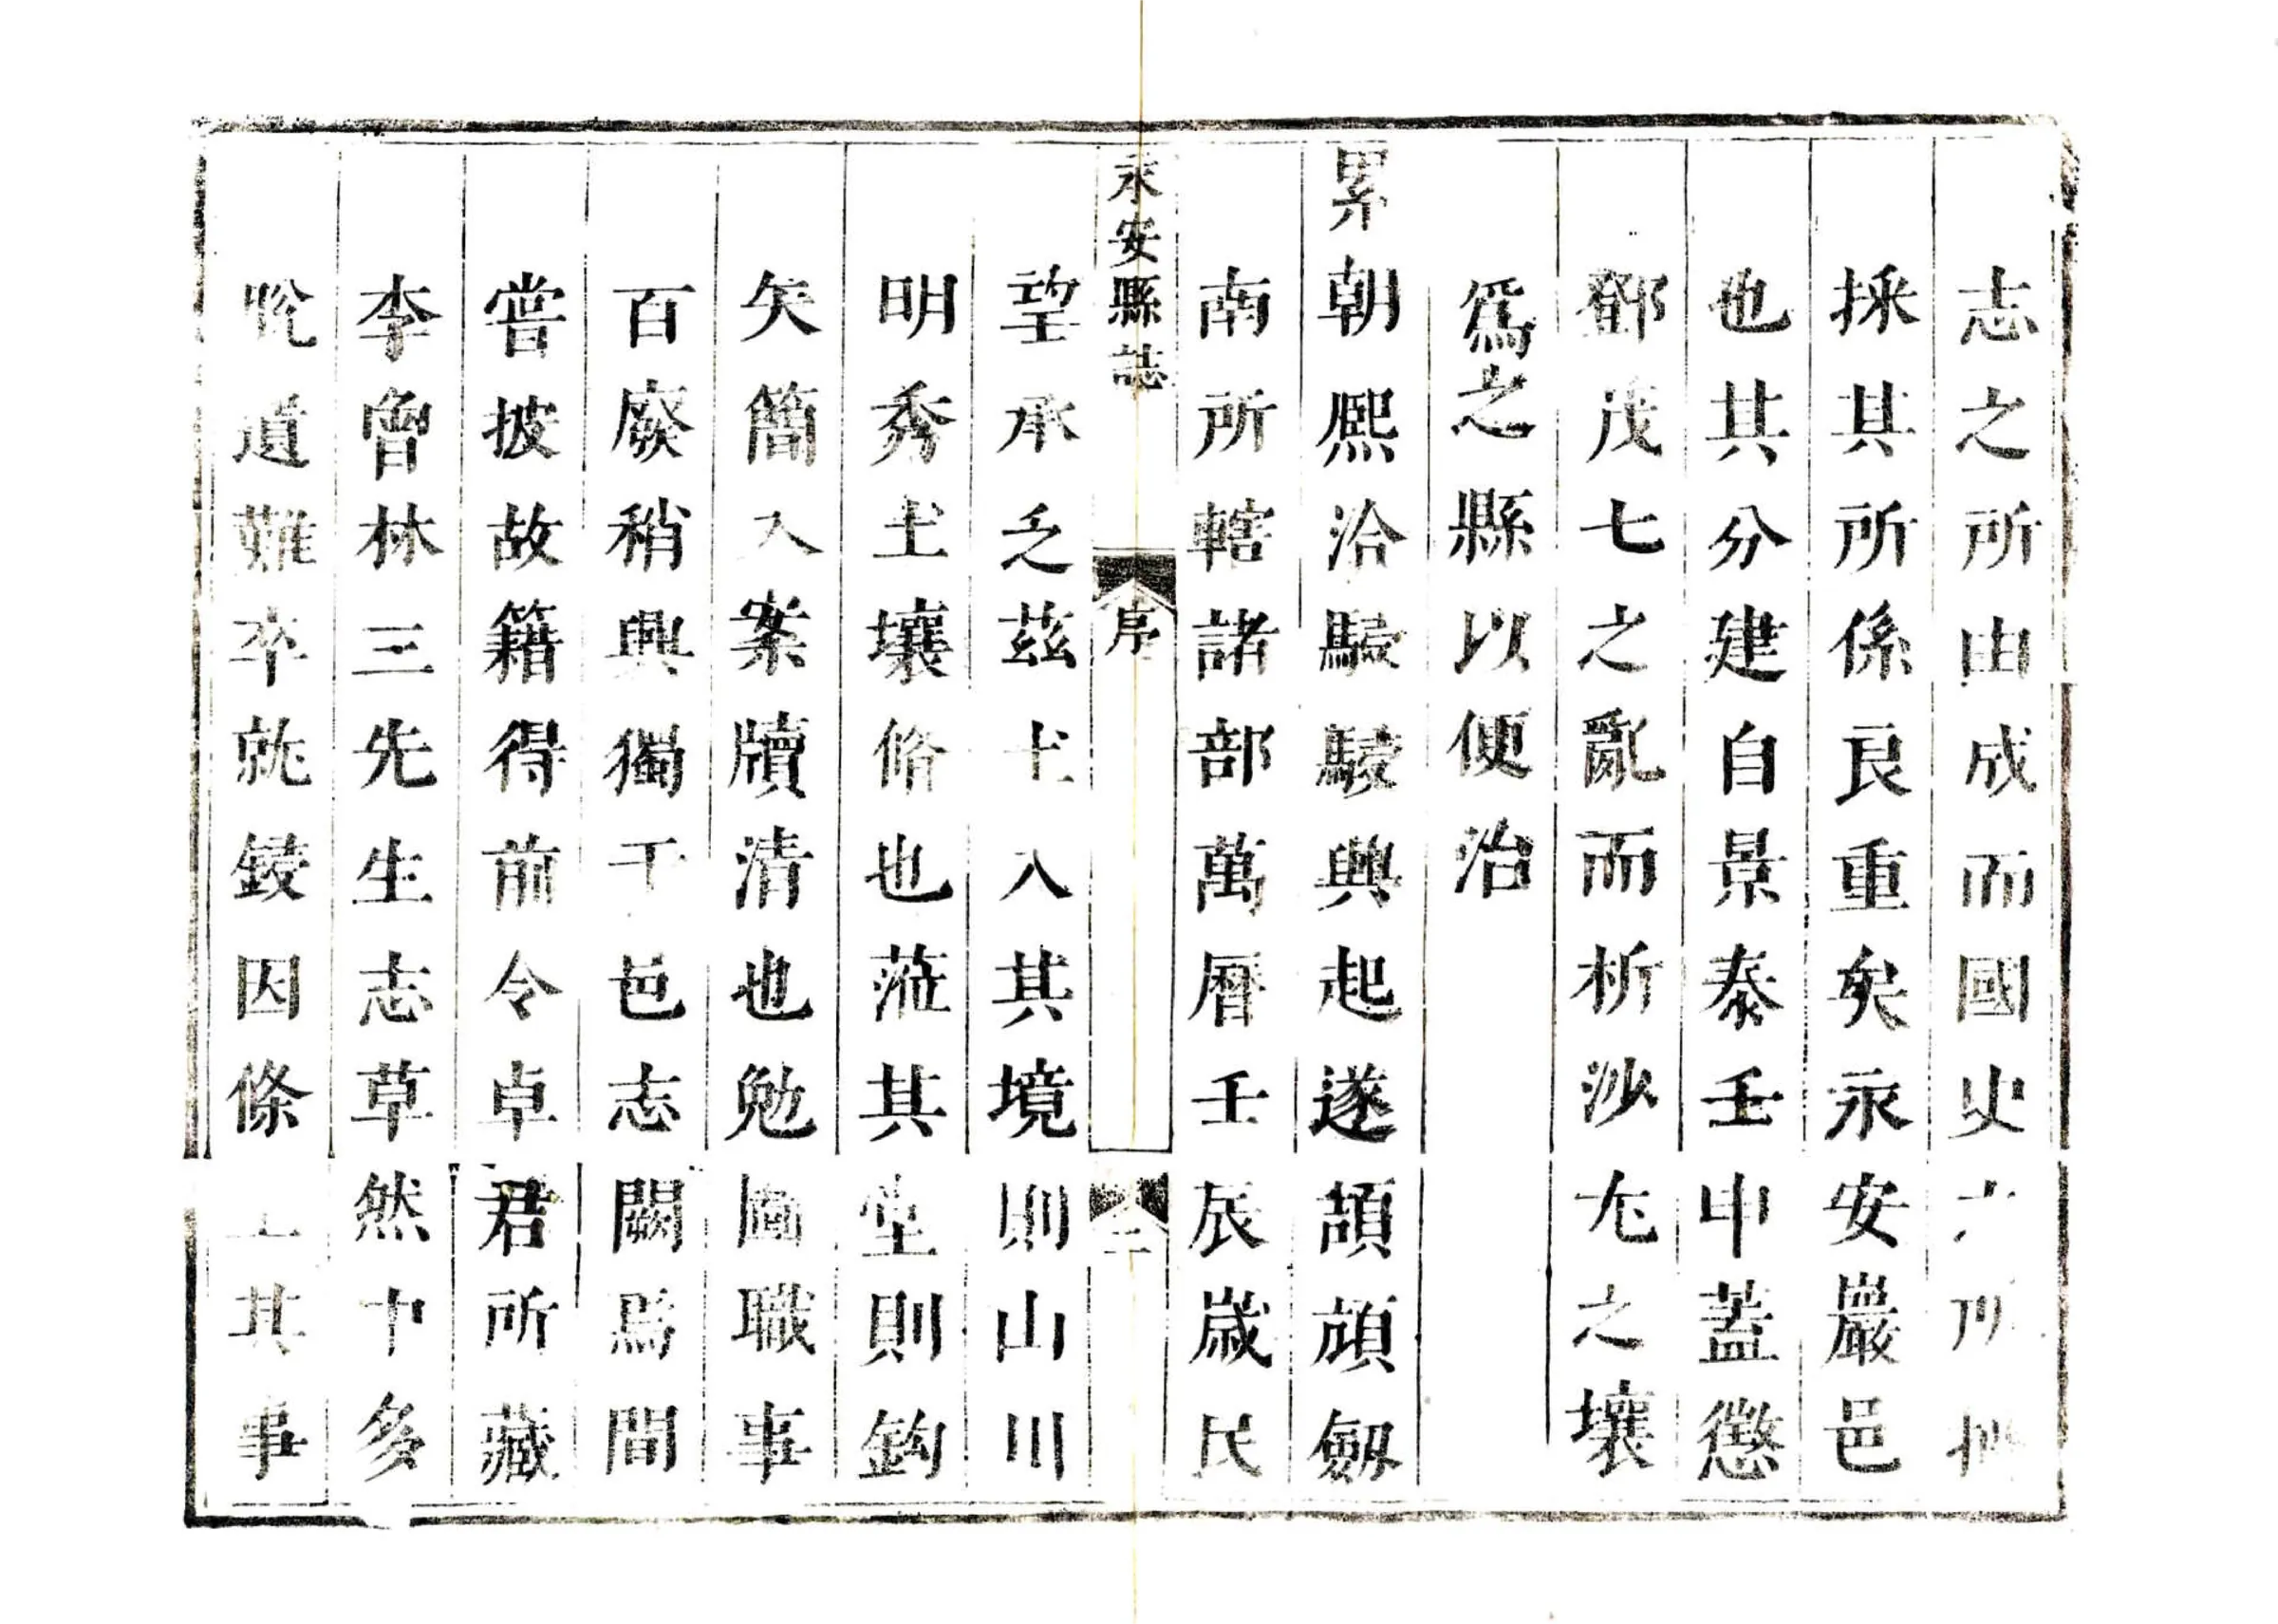 志之所由成而國史之所
採其所係良重矣永安巖邑
也其分建自景泰壬申蓋懲
鄧茂七之亂而析沙尤之壤
爲之縣以便治
累朝熈洽駸駸興起遂頡頏劔
南所轄諸部萬曆壬辰歲民
永安縣誌
序
二
望承乏茲土入其境則山川
明秀土壤脩也蒞其堂則鈎
矢簡入案牘清也勉圖職事
百廢稍興獨干邑志闕焉間
嘗披故籍得前令卓君所藏
李曾林三先生志草然中多
遺難卒就鋟因條其事